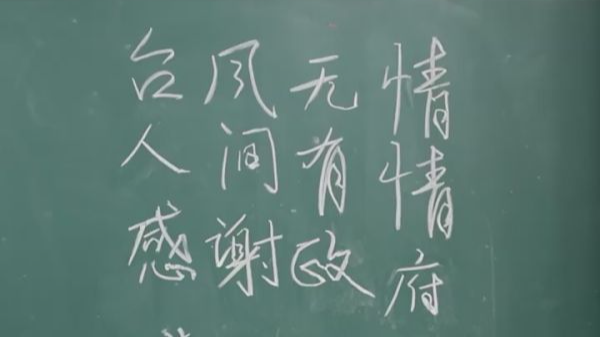 台风无情
人间有情
感谢政府